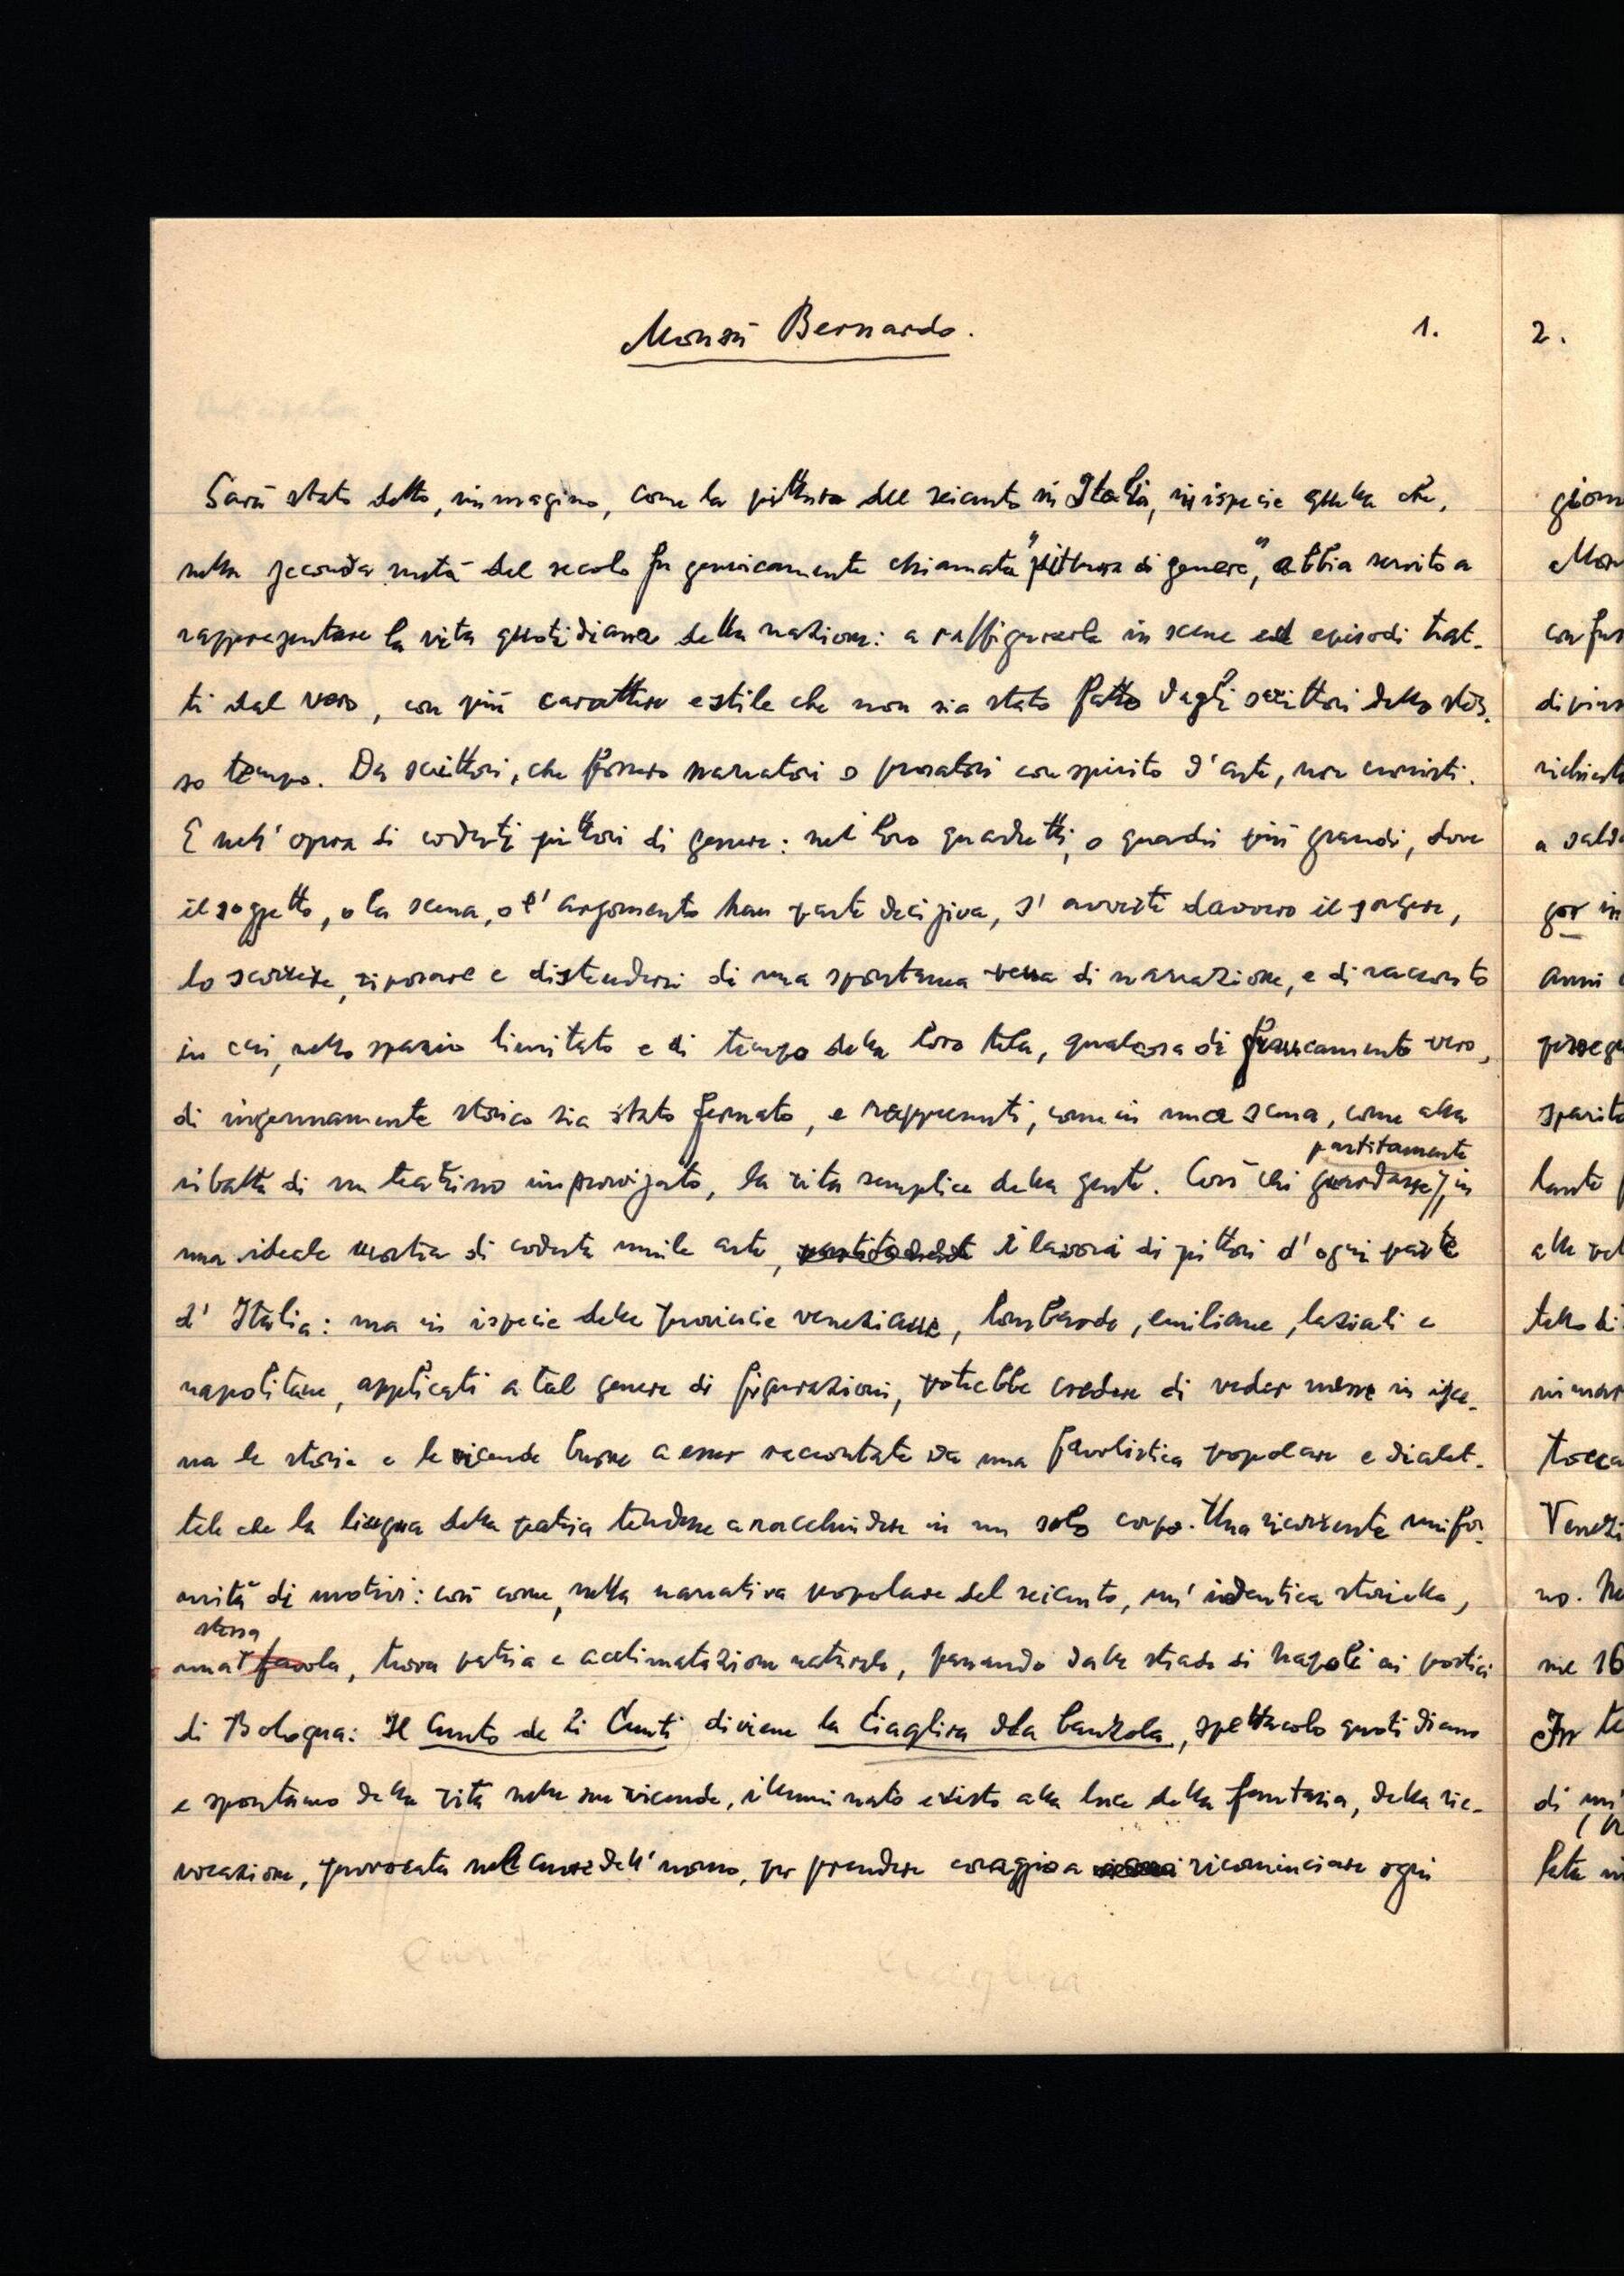 Monsù Bernardo.
1.
Sarà stato detto, immagino, come la pittura del seicento in Italia, in ispecie quella che,
nella seconda metà del secolo fu genericamente chiamata "pittura di genere", abbia servito a
rappresentare la vita quotidiana della nazione: a raffigurarla in scene ed episodi trat-
ti dal vero, con più carattere e stile che non sia stato fatto dagli scrittori dello stes-
so tempo. Da scrittori, che fossero narratori o prosatori con spirito d'arte, non cronisti.
E nell'opra di codesti pittori di genere: nei loro quadretti, o quadri più grandi, dove
il soggetto, o la scena, o l'argomento han parte decisiva, s'avverte davvero il sorgere,
lo scorrere, riposare e distendersi di una spontanea vena di narrazione, e di racconto
in cui, nello spazio limitato e di tempo della loro tela, qualcosa di francamente vero,
di ingenuamente storico sia stato fermato, e rappresenti, come in una scena, come alla
partitamente
ribalta di un teatrino improvvisato, la vita semplice della gente. Così chi guardasse, in
una ideale mostra di codesta umile arte, i lavori di pittori d'ogni parte
d'Italia: ma in ispecie delle provincie veneziane, lombarde, emiliane, laziali e
napolitane, applicati a tal genere di figurazioni, potrebbe credere di veder messe in isce-
na le storie e le vicende buone a esser raccontate da una favolistica popolare e dialet-
tale che la lingua della patria tendesse a racchiudere in un solo corpo. Una ricorrente unifor-
mità di motivi: così come, nella narrativa popolare del seicento, un'identica storiella,
stessa
una favola, trova patria e acclimatazione naturale, passando dalle strade di Napoli ai portici
di Bologna: Il Cunto de li Cunti diviene la Ciaqlira dla banzola, spettacolo quotidiano
e spontaneo della vita nelle sue vicende, illuminato e visto alla luce della fantasia, della rie-
vocazione, provocata nel cuore dell'uomo, per prendere coraggio a ricominciare ogni
2.